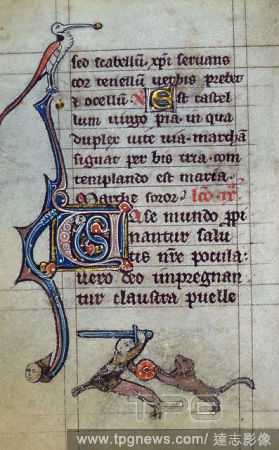 sed scabellũ. xp̃i servans
cor tenellũ verbis prebet
et ocellũ. Est castel
lum virgo pia in qua
duplex vite via. marchã
signat per bis tria. com
templando est maria.
Marche soror.
ase mundo
nantur salu
tis nr̃e pocula.
vero deo inpregnan
tur claustra puelle
TPG
www.tpgnews.com / 達志影像